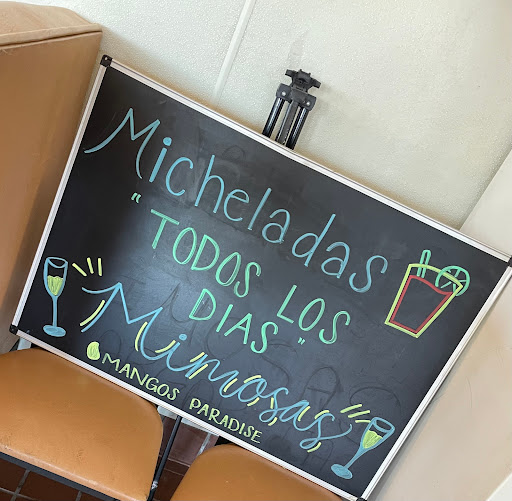 Micheladas
"TODOS LOS
DIAS"
Mimosas
MANGOS PARADISE